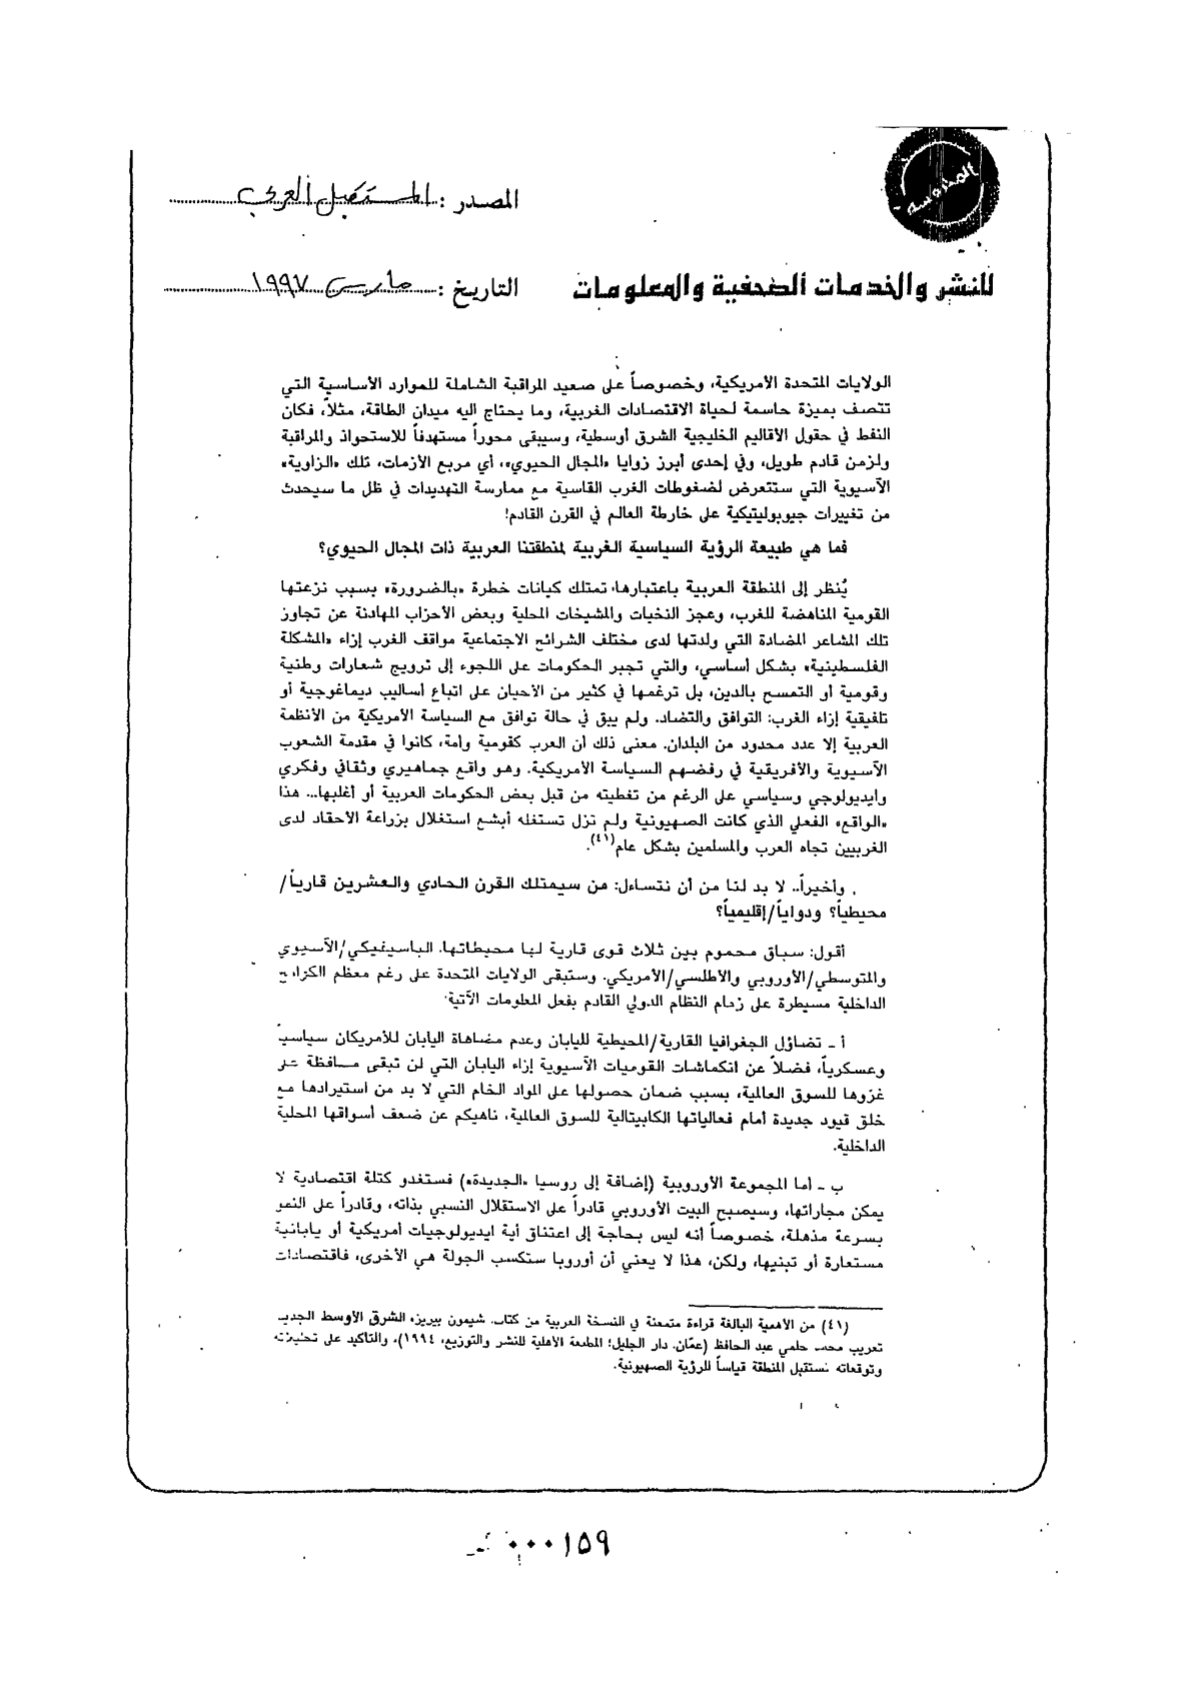 المحروسة
المصدر : المستقبل العربي
للنشر والخدمات الصحفية والمعلومات
التاريخ : مارس ١٩٩٧
الولايات المتحدة الأمريكية، وخصوصاً على صعيد المراقبة الشاملة للموارد الأساسية التي
تتصف بميزة حاسمة لحياة الاقتصادات الغربية، وما يحتاج اليه ميدان الطاقة، مثلاً، فكان
النفط في حقول الأقاليم الخليجية الشرق أوسطية، وسيبقى محوراً مستهدفاً للاستحواذ والمراقبة
ولزمن قادم طويل، وفي إحدى أبرز زوايا «المجال الحيوي»، أي مربع الأزمات، تلك «الزاوية»
الآسيوية التي ستتعرض لضغوطات الغرب القاسية مع ممارسة التهديدات في ظل ما سيحدث
من تغييرات جيوبوليتيكية على خارطة العالم في القرن القادم!
فما هي طبيعة الرؤية السياسية الغربية لمنطقتنا العربية ذات المجال الحيوي؟
يُنظر إلى المنطقة العربية باعتبارها، تمتلك كيانات خطرة «بالضرورة» بسبب نزعتها
القومية المناهضة للغرب، وعجز النخبات والمشيخات المحلية وبعض الأحزاب المهادنة عن تجاوز
تلك المشاعر المضادة التي ولدتها لدى مختلف الشرائح الاجتماعية مواقف الغرب إزاء «المشكلة
الفلسطينية» بشكل أساسي، والتي تجبر الحكومات على اللجوء إلى ترويج شعارات وطنية
وقومية أو التمسح بالدين، بل ترغمها في كثير من الأحيان على اتباع أساليب ديماغوجية أو
تلفيقية إزاء الغرب: التوافق والتضاد. ولم يبق في حالة توافق مع السياسة الأمريكية من الأنظمة
العربية إلا عدد محدود من البلدان. معنى ذلك أن العرب كقومية وأمة، كانوا في مقدمة الشعوب
الآسيوية والأفريقية في رفضهم السياسة الأمريكية. وهو واقع جماهيري وثقافي وفكري
وايديولوجي وسياسي على الرغم من تغطيته من قبل بعض الحكومات العربية أو أغلبها... هذا
«الواقع» الفعلي الذي كانت الصهيونية ولم تزل تستغله أبشع استغلال بزراعة الأحقاد لدى
الغربيين تجاه العرب والمسلمين بشكل عام(٤١).
وأخيراً.. لا بد لنا من أن نتساءل: من سيمتلك القرن الحادي والعشرين قارياً/
محيطياً؟ ودولياً/إقليمياً؟
أقول: سباق محموم بين ثلاث قوى قارية لها محيطاتها. الباسيفيكي/الآسيوي
والمتوسطي/الأوروبي والأطلسي/الأمريكي. وستبقى الولايات المتحدة على رغم معظم الكوابح
الداخلية مسيطرة على زمام النظام الدولي القادم بفعل المعلومات الآتية:
أ ـ تضاؤل الجغرافيا القارية/المحيطية لليابان وعدم مضاهاة اليابان للأمريكان سياسياً
وعسكرياً، فضلاً عن انكماشات القوميات الآسيوية إزاء اليابان التي لن تبقى محافظة على
غزوها للسوق العالمية، بسبب ضمان حصولها على المواد الخام التي لا بد من استيرادها مع
خلق قيود جديدة أمام فعالياتها الكابيتالية للسوق العالمية، ناهيكم عن ضعف أسواقها المحلية
الداخلية.
ب ـ أما المجموعة الأوروبية (إضافة إلى روسيا «الجديدة») فستغدو كتلة اقتصادية لا
يمكن مجاراتها، وسيصبح البيت الأوروبي قادراً على الاستقلال النسبي بذاته، وقادراً على النمو
بسرعة مذهلة، خصوصاً أنه ليس بحاجة إلى اعتناق أية ايديولوجيات أمريكية أو يابانية
مستعارة أو تبنيها، ولكن، هذا لا يعني أن أوروبا ستكسب الجولة هي الأخرى، فاقتصادات
(٤١) من الأهمية البالغة قراءة متمعنة في النسخة العربية من كتاب. شيمون بيريز، الشرق الأوسط الجديد
تعريب محمد حلمي عبد الحافظ (عمّان. دار الجليل؛ المطبعة الأهلية للنشر والتوزيع، ١٩٩٤)، والتأكيد على
وتوقعاته لمستقبل المنطقة قياساً للرؤية الصهيونية.
٠٠٠١٥٩